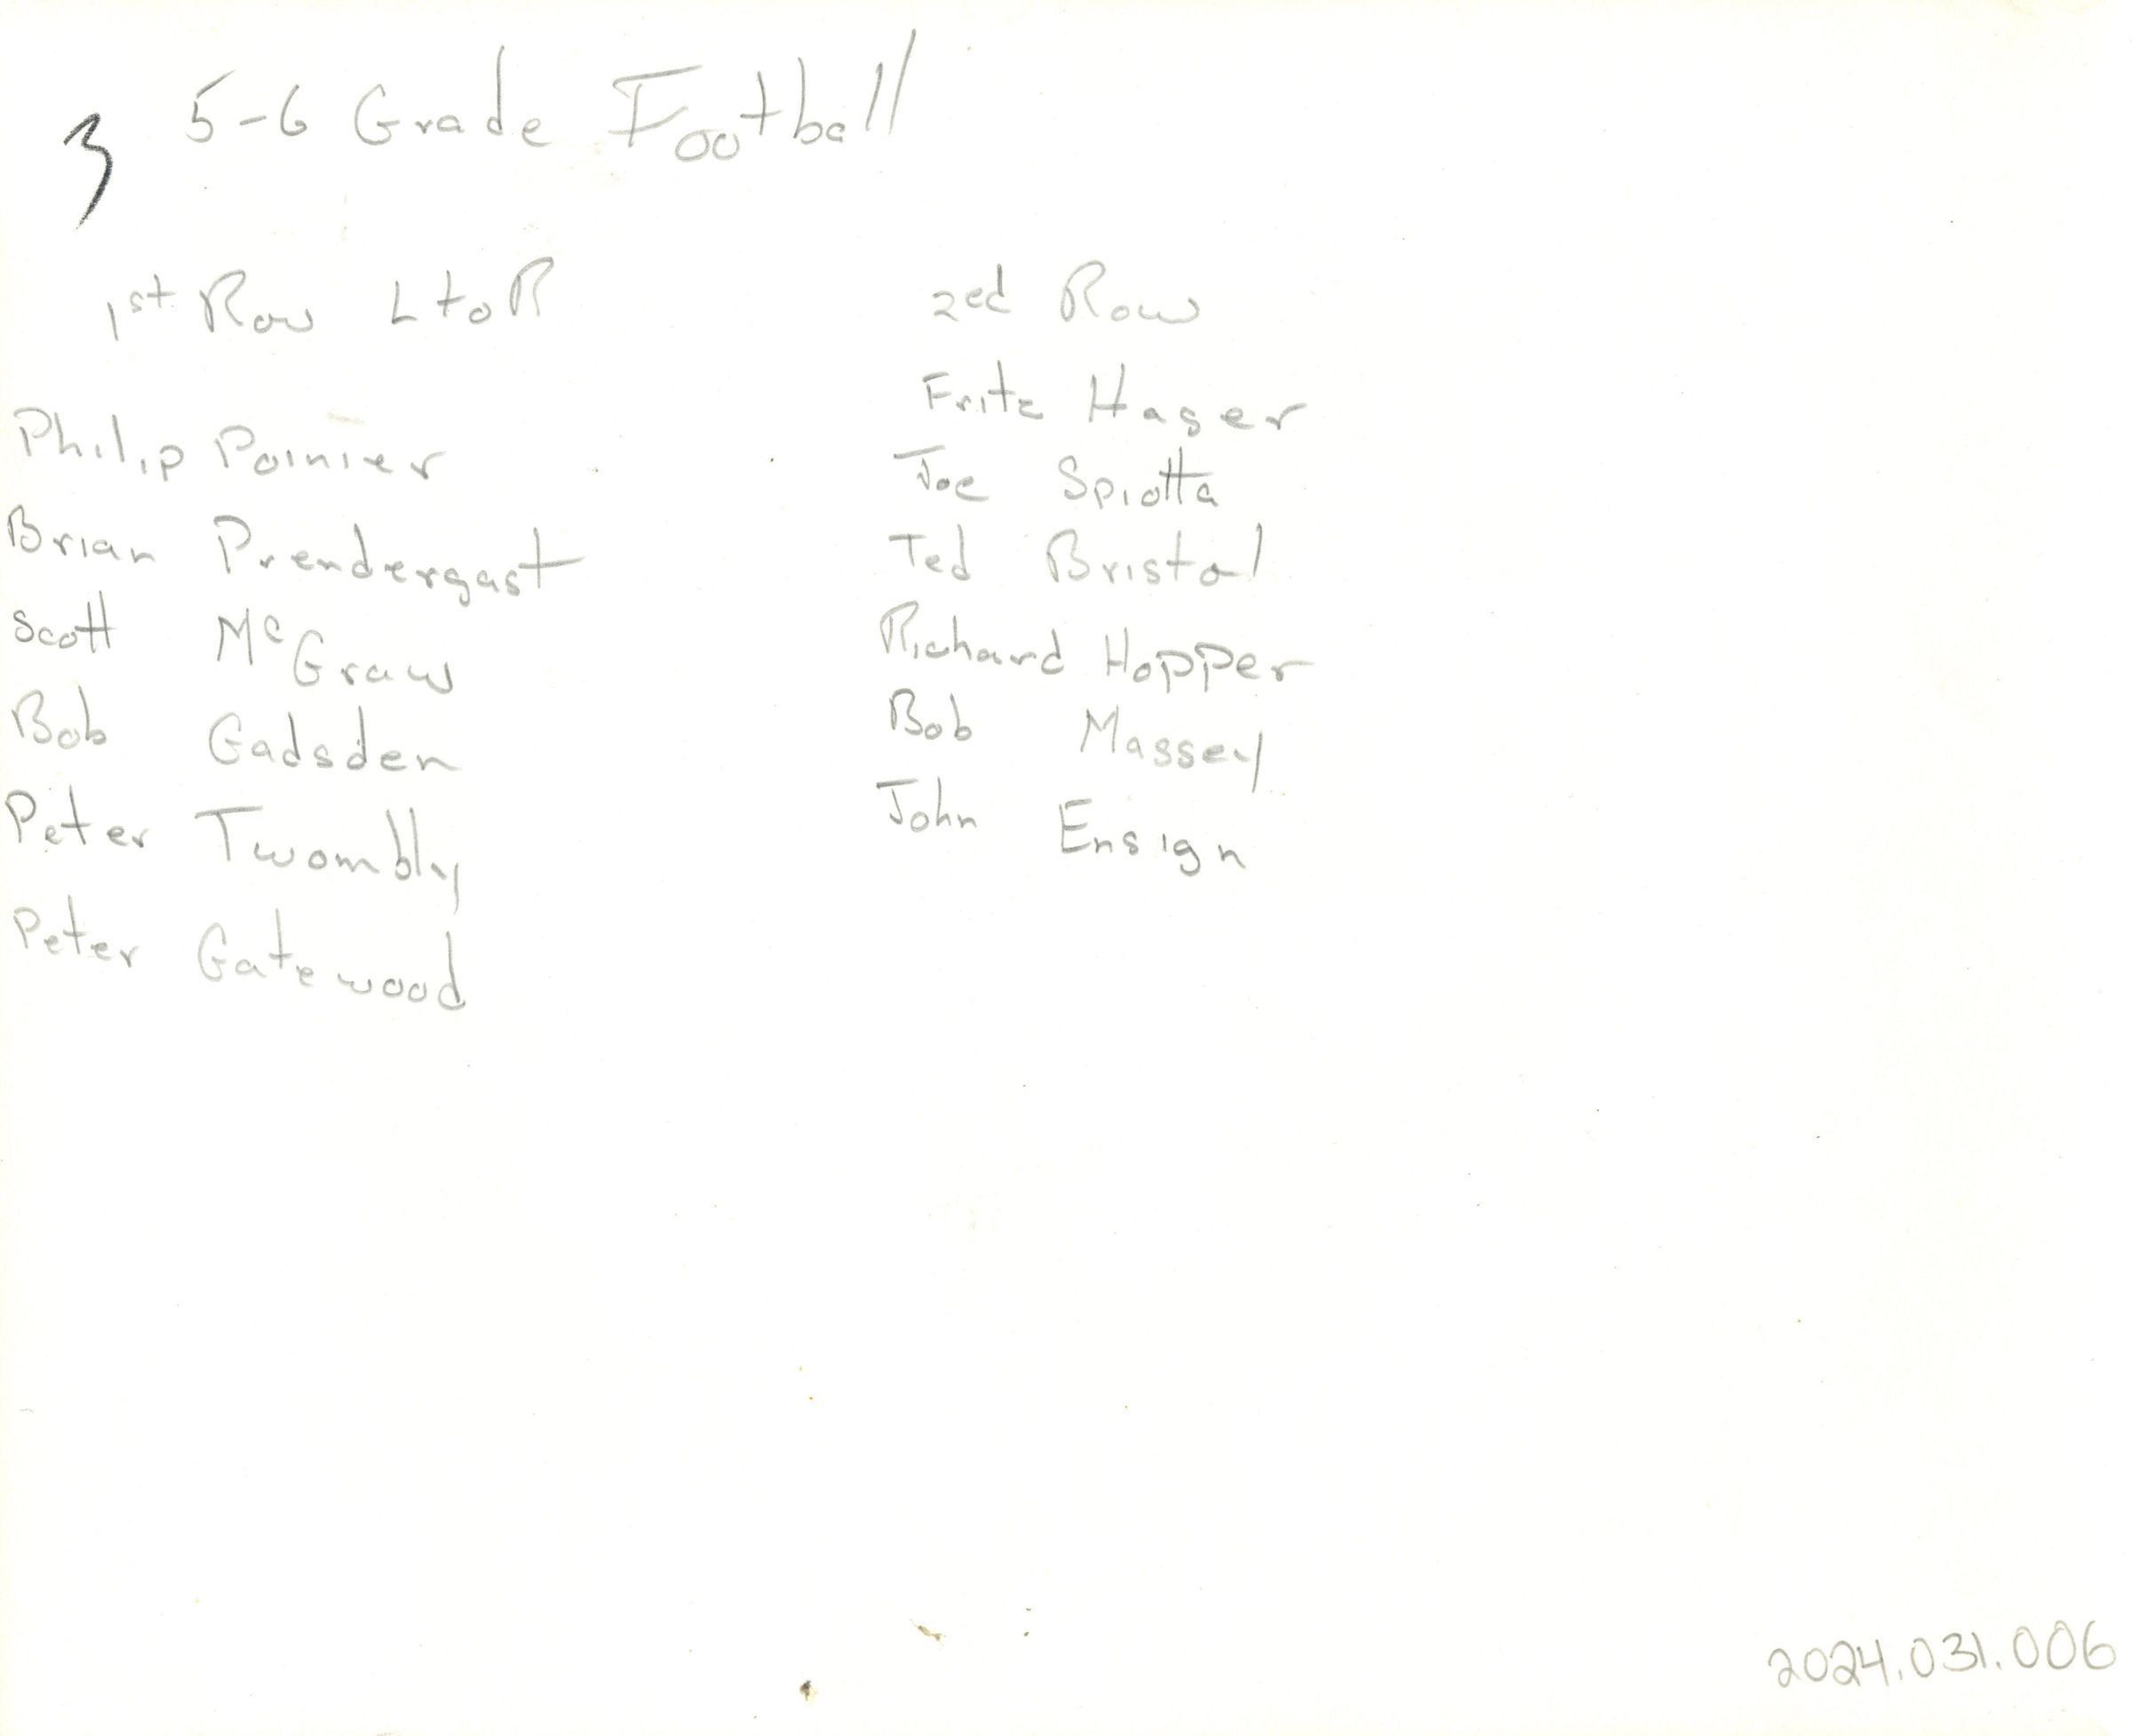 3 5-6 Grade Football
1st Row L to R
Philip Poinier
Brian Prendergast
Scott McGraw
Bob Gadsden
Peter Twombly
Peter Gatewood
2ed Row
Fritz Hager
Joe Spiotta
Ted Bristol
Richard Hopper
Bob Massey
John Ensign
2024.031.006